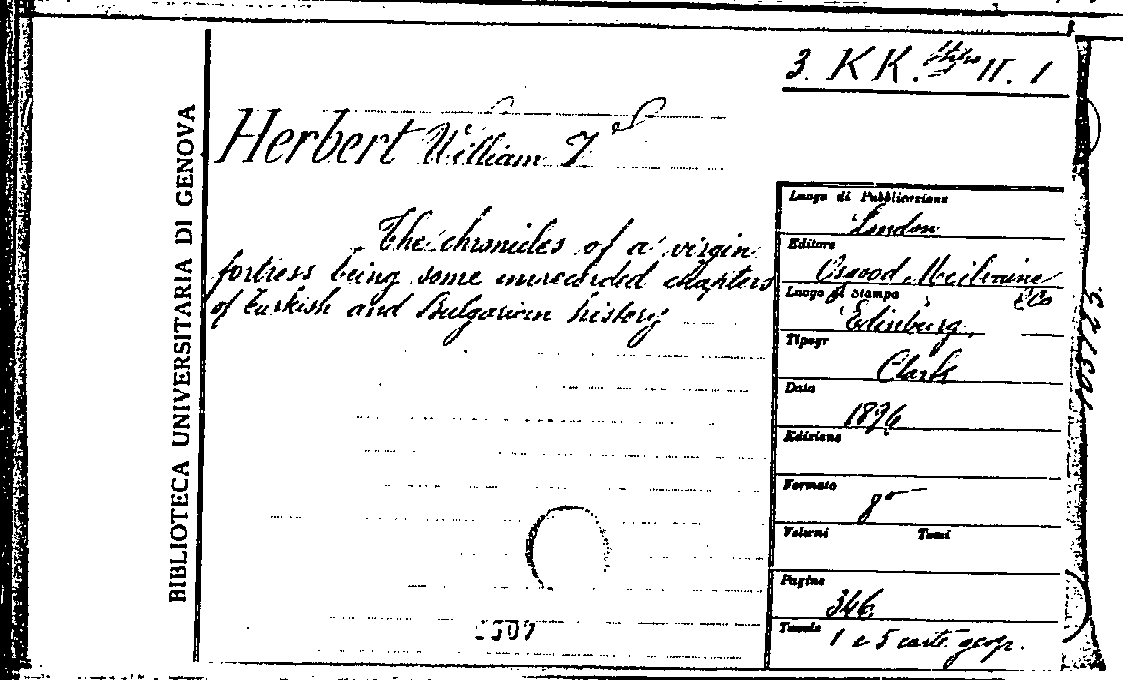 3. KK. II. 1
BIBLIOTECA UNIVERSITARIA DI GENOVA
Herbert William
The chronicles of a virgin
fortress being some unrecorded chapters
of turkish and Bulgarian history
Luogo di Pubblicazione
London
Editore
Osgood, McIlvaine
& Co
Luogo di Stampa
Edinburg,
Tipogr
Clark
Data
1896
Edizione
Formato
8°
Volumi Tomi
Pagine
346
Tavole 1 e 5 carte geogr.